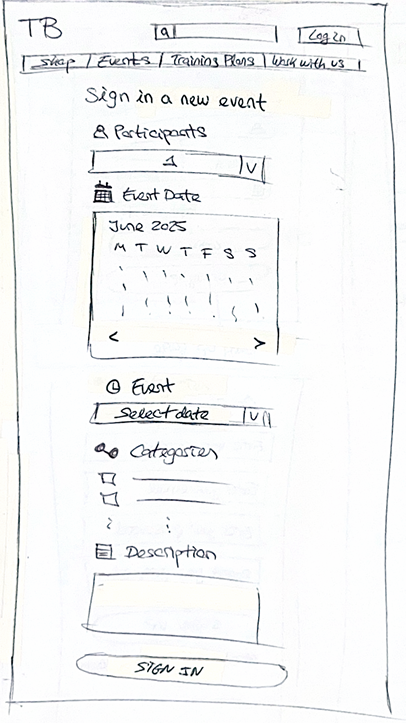 TB
Log In
Shop | Events | Training Plans | Work with us |
Sign in a new event
Participants
1
Event Date
June 2025
M T W T F S S
< >
Event
Select date
Categories
Description
SIGN IN